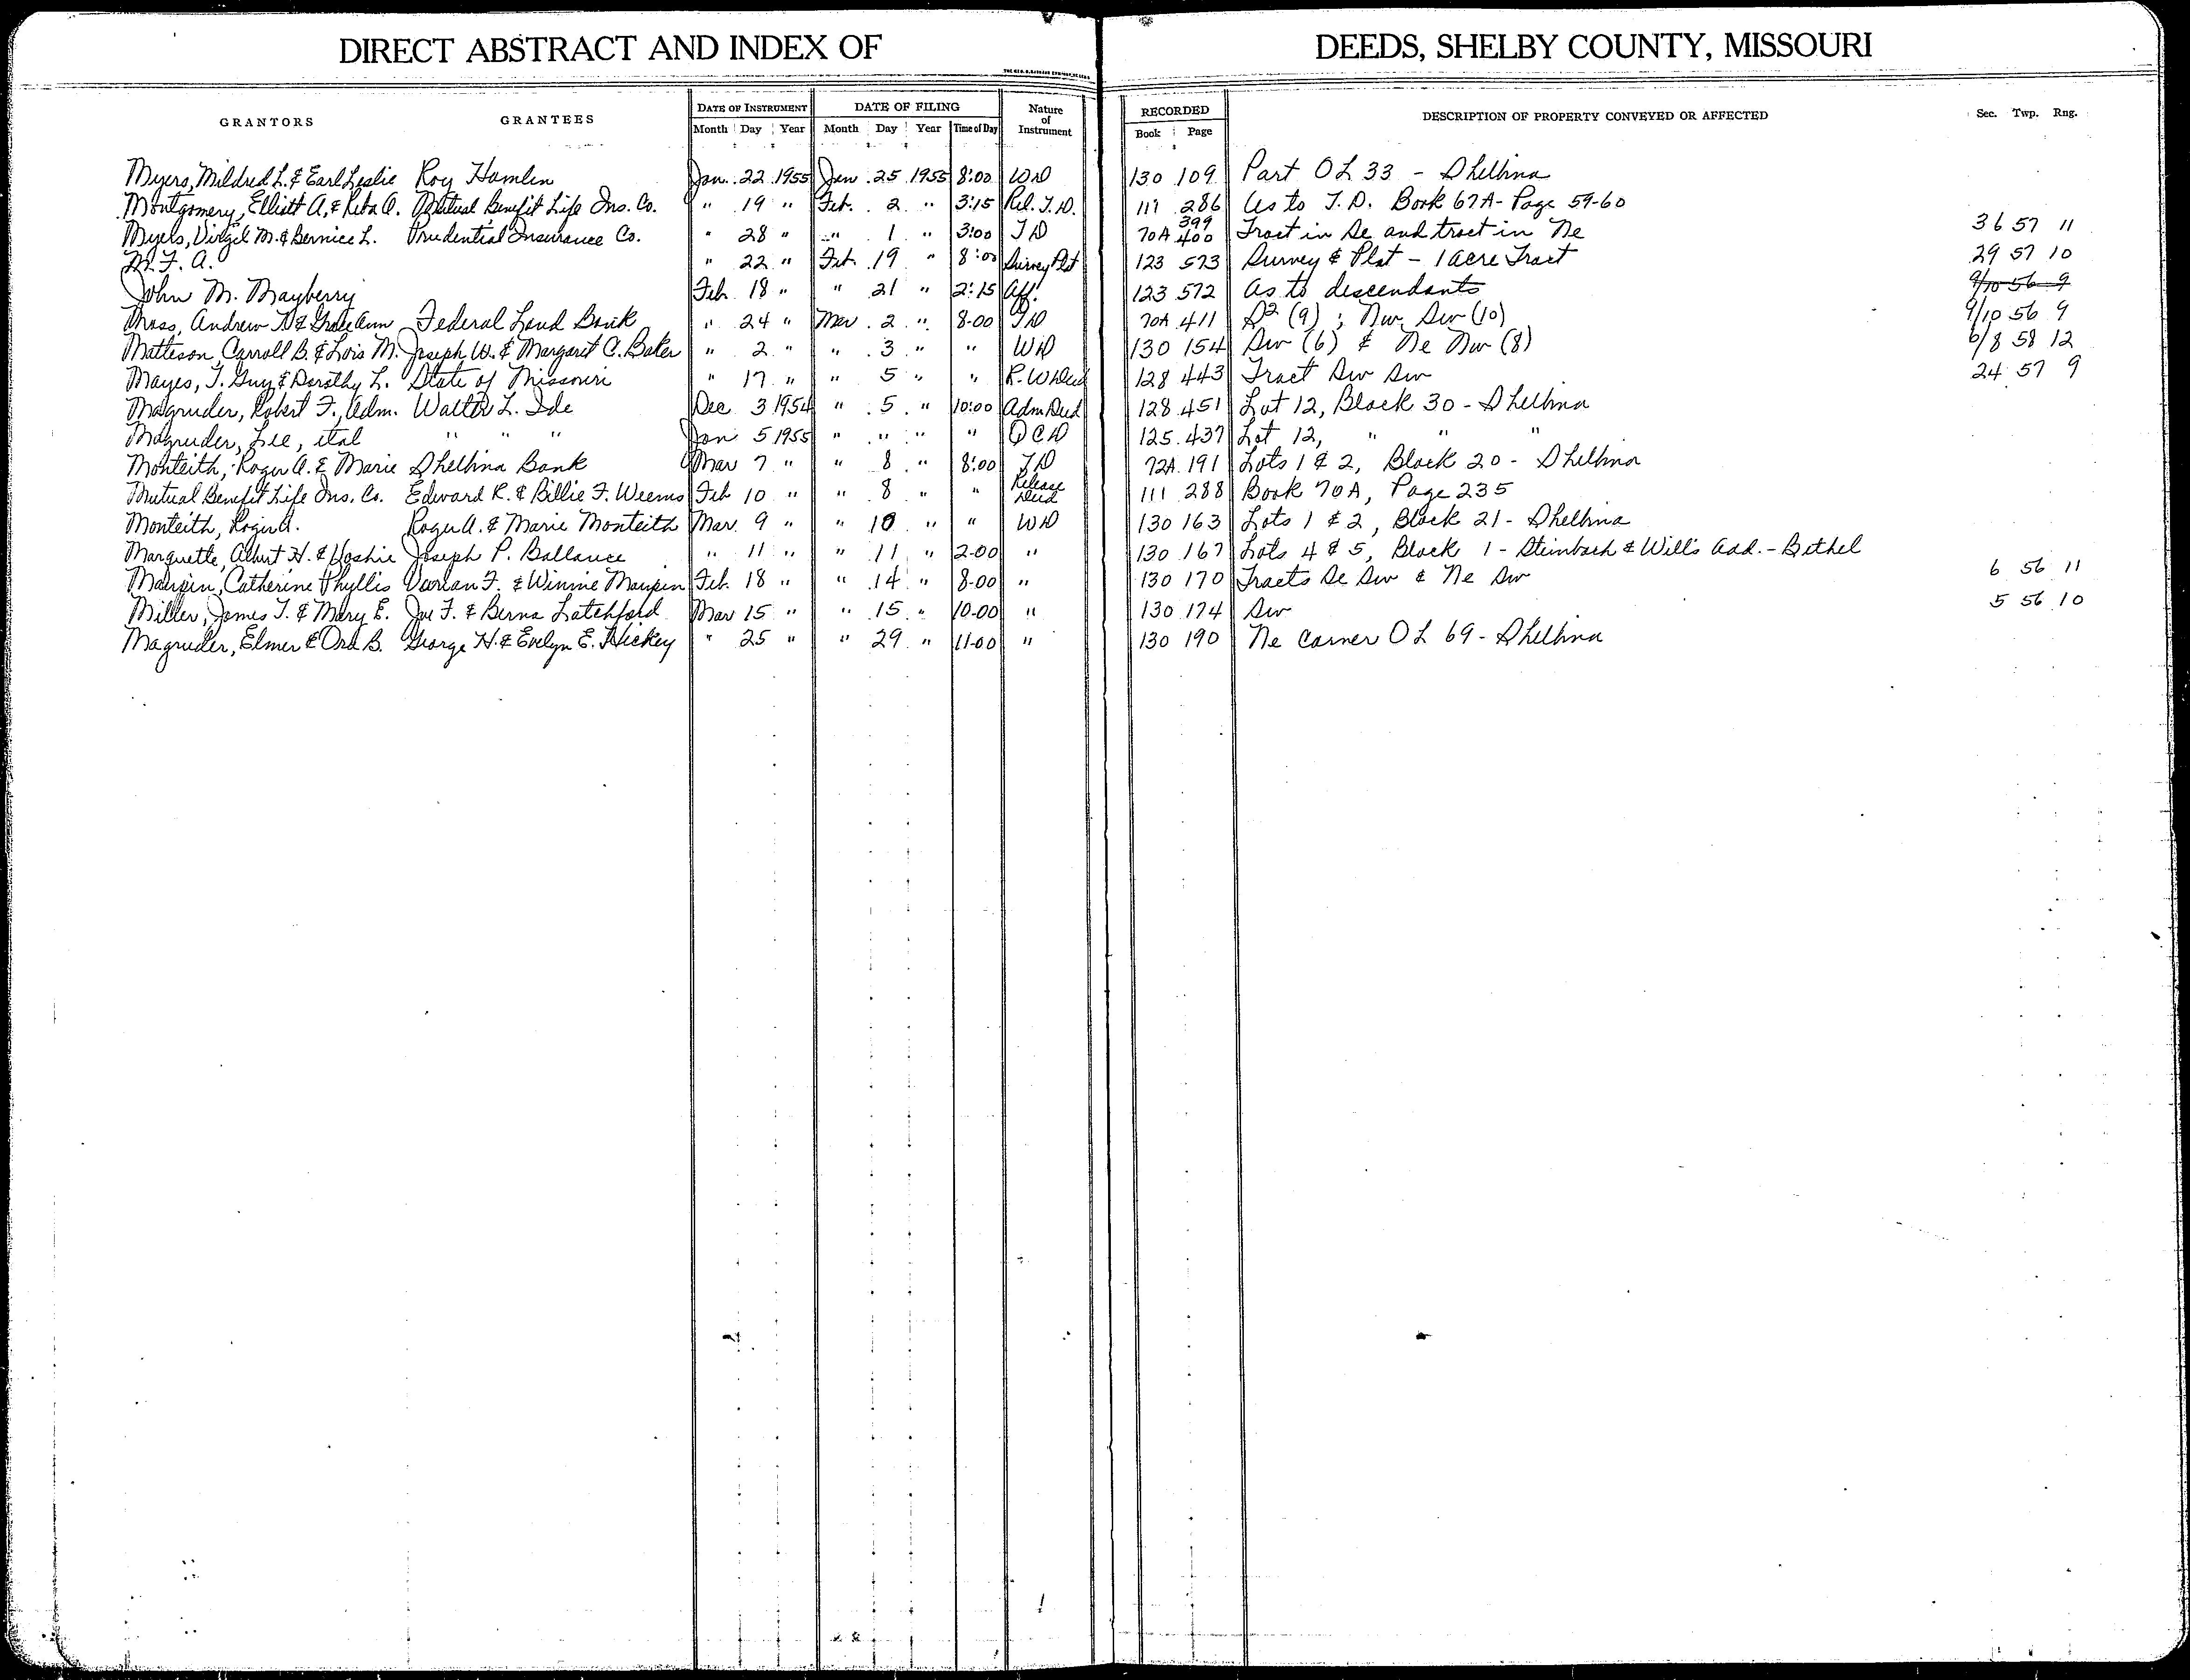 DIRECT ABSTRACT AND INDEX OF DEEDS, SHELBY COUNTY, MISSOURI
GRANTORS GRANTEES DATE OF INSTRUMENT DATE OF FILING Nature of Instrument RECORDED DESCRIPTION OF PROPERTY CONVEYED OR AFFECTED Sec. Twp. Rng.
Month Day Year Month Day Year Time of Day Book Page
Myers, Mildred L. & Earl Leslie Roy Hamlin Jan. 22 1955 Jan 25 1955 8:00 WD 130 109 Part OL 33 - Shelbina
Montgomery, Elliott A. & Reta A. Mutual Benefit Life Ins. Co. " 19 " Feb. 2 " 3:15 Rel. T.D. 111 286 As to T.D. Book 67A - Page 59-60
Myers, Virgil M. & Bernice L. Prudential Insurance Co. " 28 " " 1 " 3:00 TD 70A 399 400 Tract in Se and tract in Ne 36 57 11
M. F. A. " 22 " Feb. 19 " 8:00 Survey Plat 123 573 Survey & Plat - 1 acre Tract 29 57 10
John M. Mayberry Feb. 18 " " 21 " 2:15 Aff. 123 572 As to descendants 9/10 56 9
Moss, Andrew & Grace Ann Federal Land Bank " 24 " Mar. 2 " 8-00 TD 70A 411 S2 (9) ; Nw Sw (10) 9/10 56 9
Matteson, Carroll B. & Lois M. Joseph W. & Margaret C. Baker " 2 " " 3 " " WD 130 154 Sw (6) & Ne Nw (8) 6/8 58 12
Mayes, J. Guy & Dorothy L. State of Missouri " 17 " " 5 " " R.W. Deed 128 443 Tract Sw Sw 24 57 9
Magruder, Robert F., Adm. Walter L. Ide Dec 3 1954 " 5 " 10:00 Adm Deed 128 451 Lot 12, Block 30 - Shelbina
Magruder, Lee, etal " " " Jan 5 1955 " " " " QCD 125 437 Lot 12, " " "
Monteith, Roger A. & Marie Shelbina Bank Mar 7 " " 8 " 8:00 TD 72A 191 Lots 1 & 2, Block 20 - Shelbina
Mutual Benefit Life Ins. Co. Edward R. & Billie F. Weems Feb 10 " " 8 " " Release Deed 111 288 Book 70A, Page 235
Monteith, Roger A. Roger A. & Marie Monteith Mar. 9 " " 10 " " WD 130 163 Lots 1 & 2, Block 21 - Shelbina
Marquette, Albert H. & Joseph P. Ballance " 11 " " 11 " 2-00 " 130 167 Lots 4 & 5, Block 1 - Steinbach & Will's Add. - Bethel
Maupin, Catherine Phyllis Vernan F. & Winnie Maupin Feb. 18 " " 14 " 8-00 " 130 170 Tracts Se Sw & Ne Sw 6 56 11
Miller, James T. & Mary E. Joe F. & Berna Latchford Mar 15 " " 15 " 10-00 " 130 174 Sw 5 56 10
Magruder, Elmer & Ora B. George H. & Evelyn E. Hickey " 25 " " 29 " 11-00 " 130 190 Ne Corner OL 69 - Shelbina